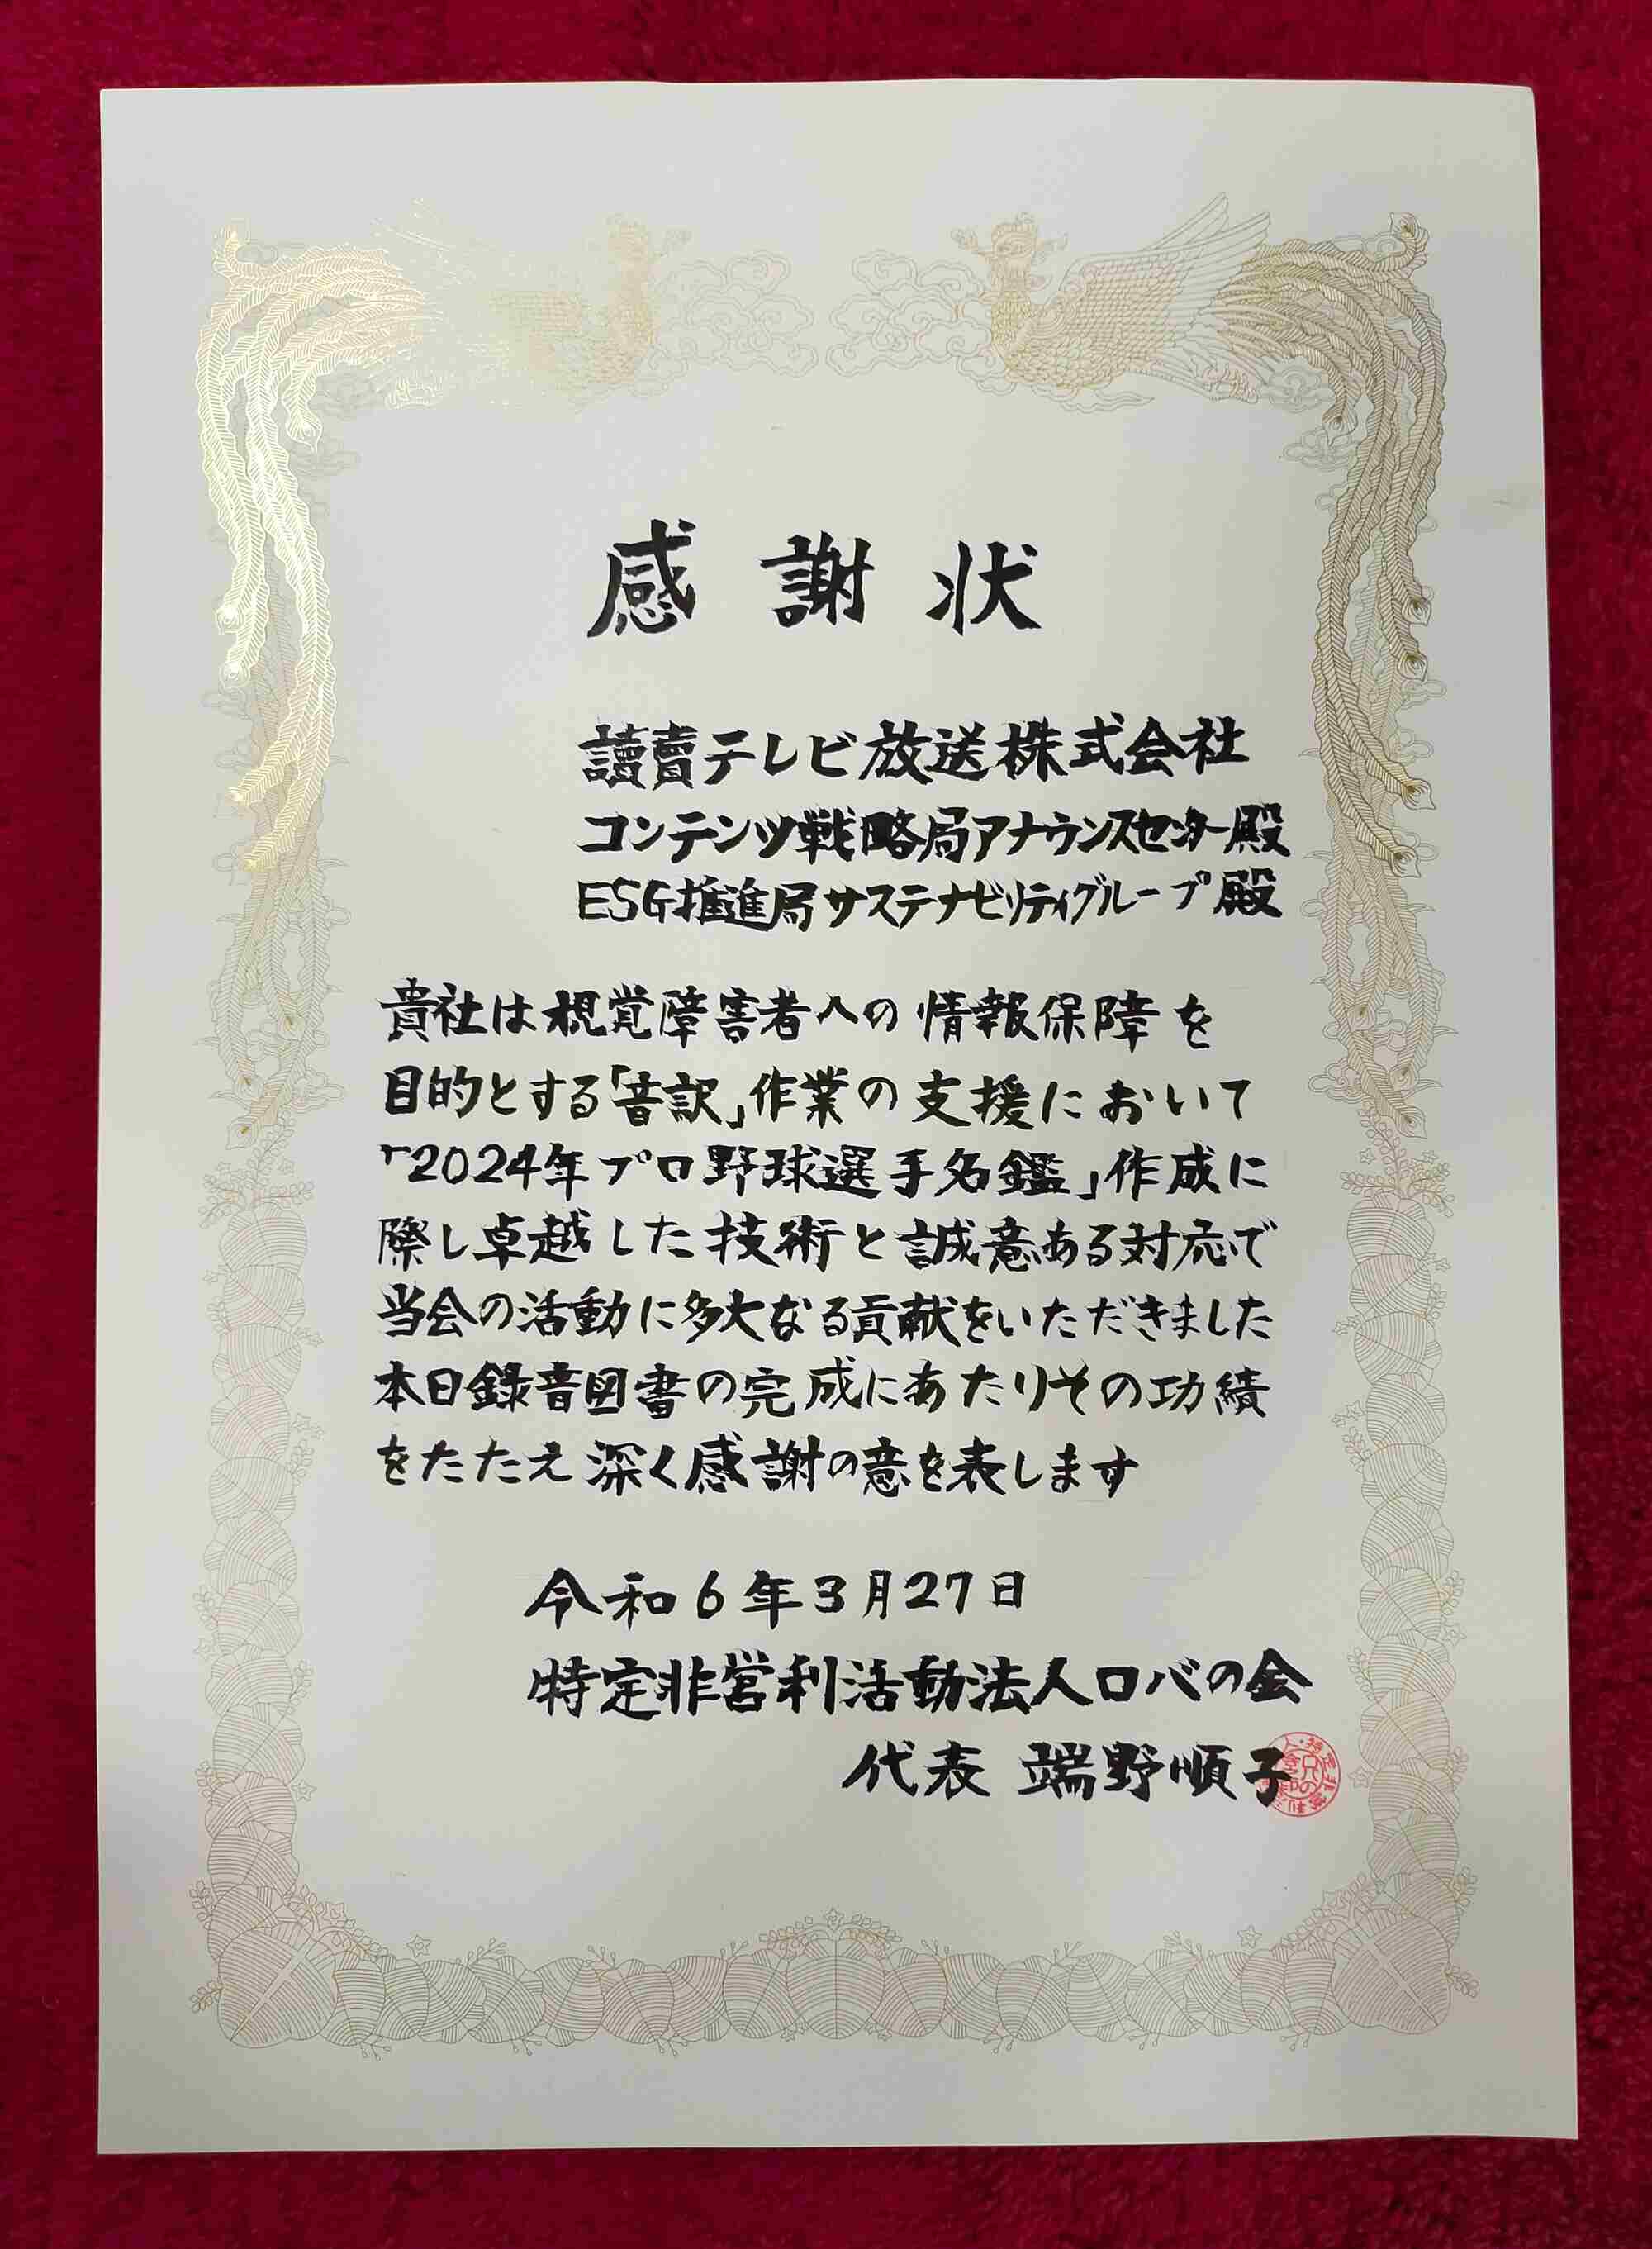 感謝状
讀賣テレビ放送株式会社
コンテンツ戦略局アナウンスセンター殿
ESG推進局サステナビリティグループ殿
貴社は視覚障害者への情報保障を
目的とする「音訳」作業の支援において
「2024年プロ野球選手名鑑」作成に
際し卓越した技術と誠意ある対応で
当会の活動に多大なる貢献をいただきました
本日録音図書の完成にあたりその功績
をたたえ深く感謝の意を表します
令和6年3月27日
特定非営利活動法人ロバの会
代表 端野順子